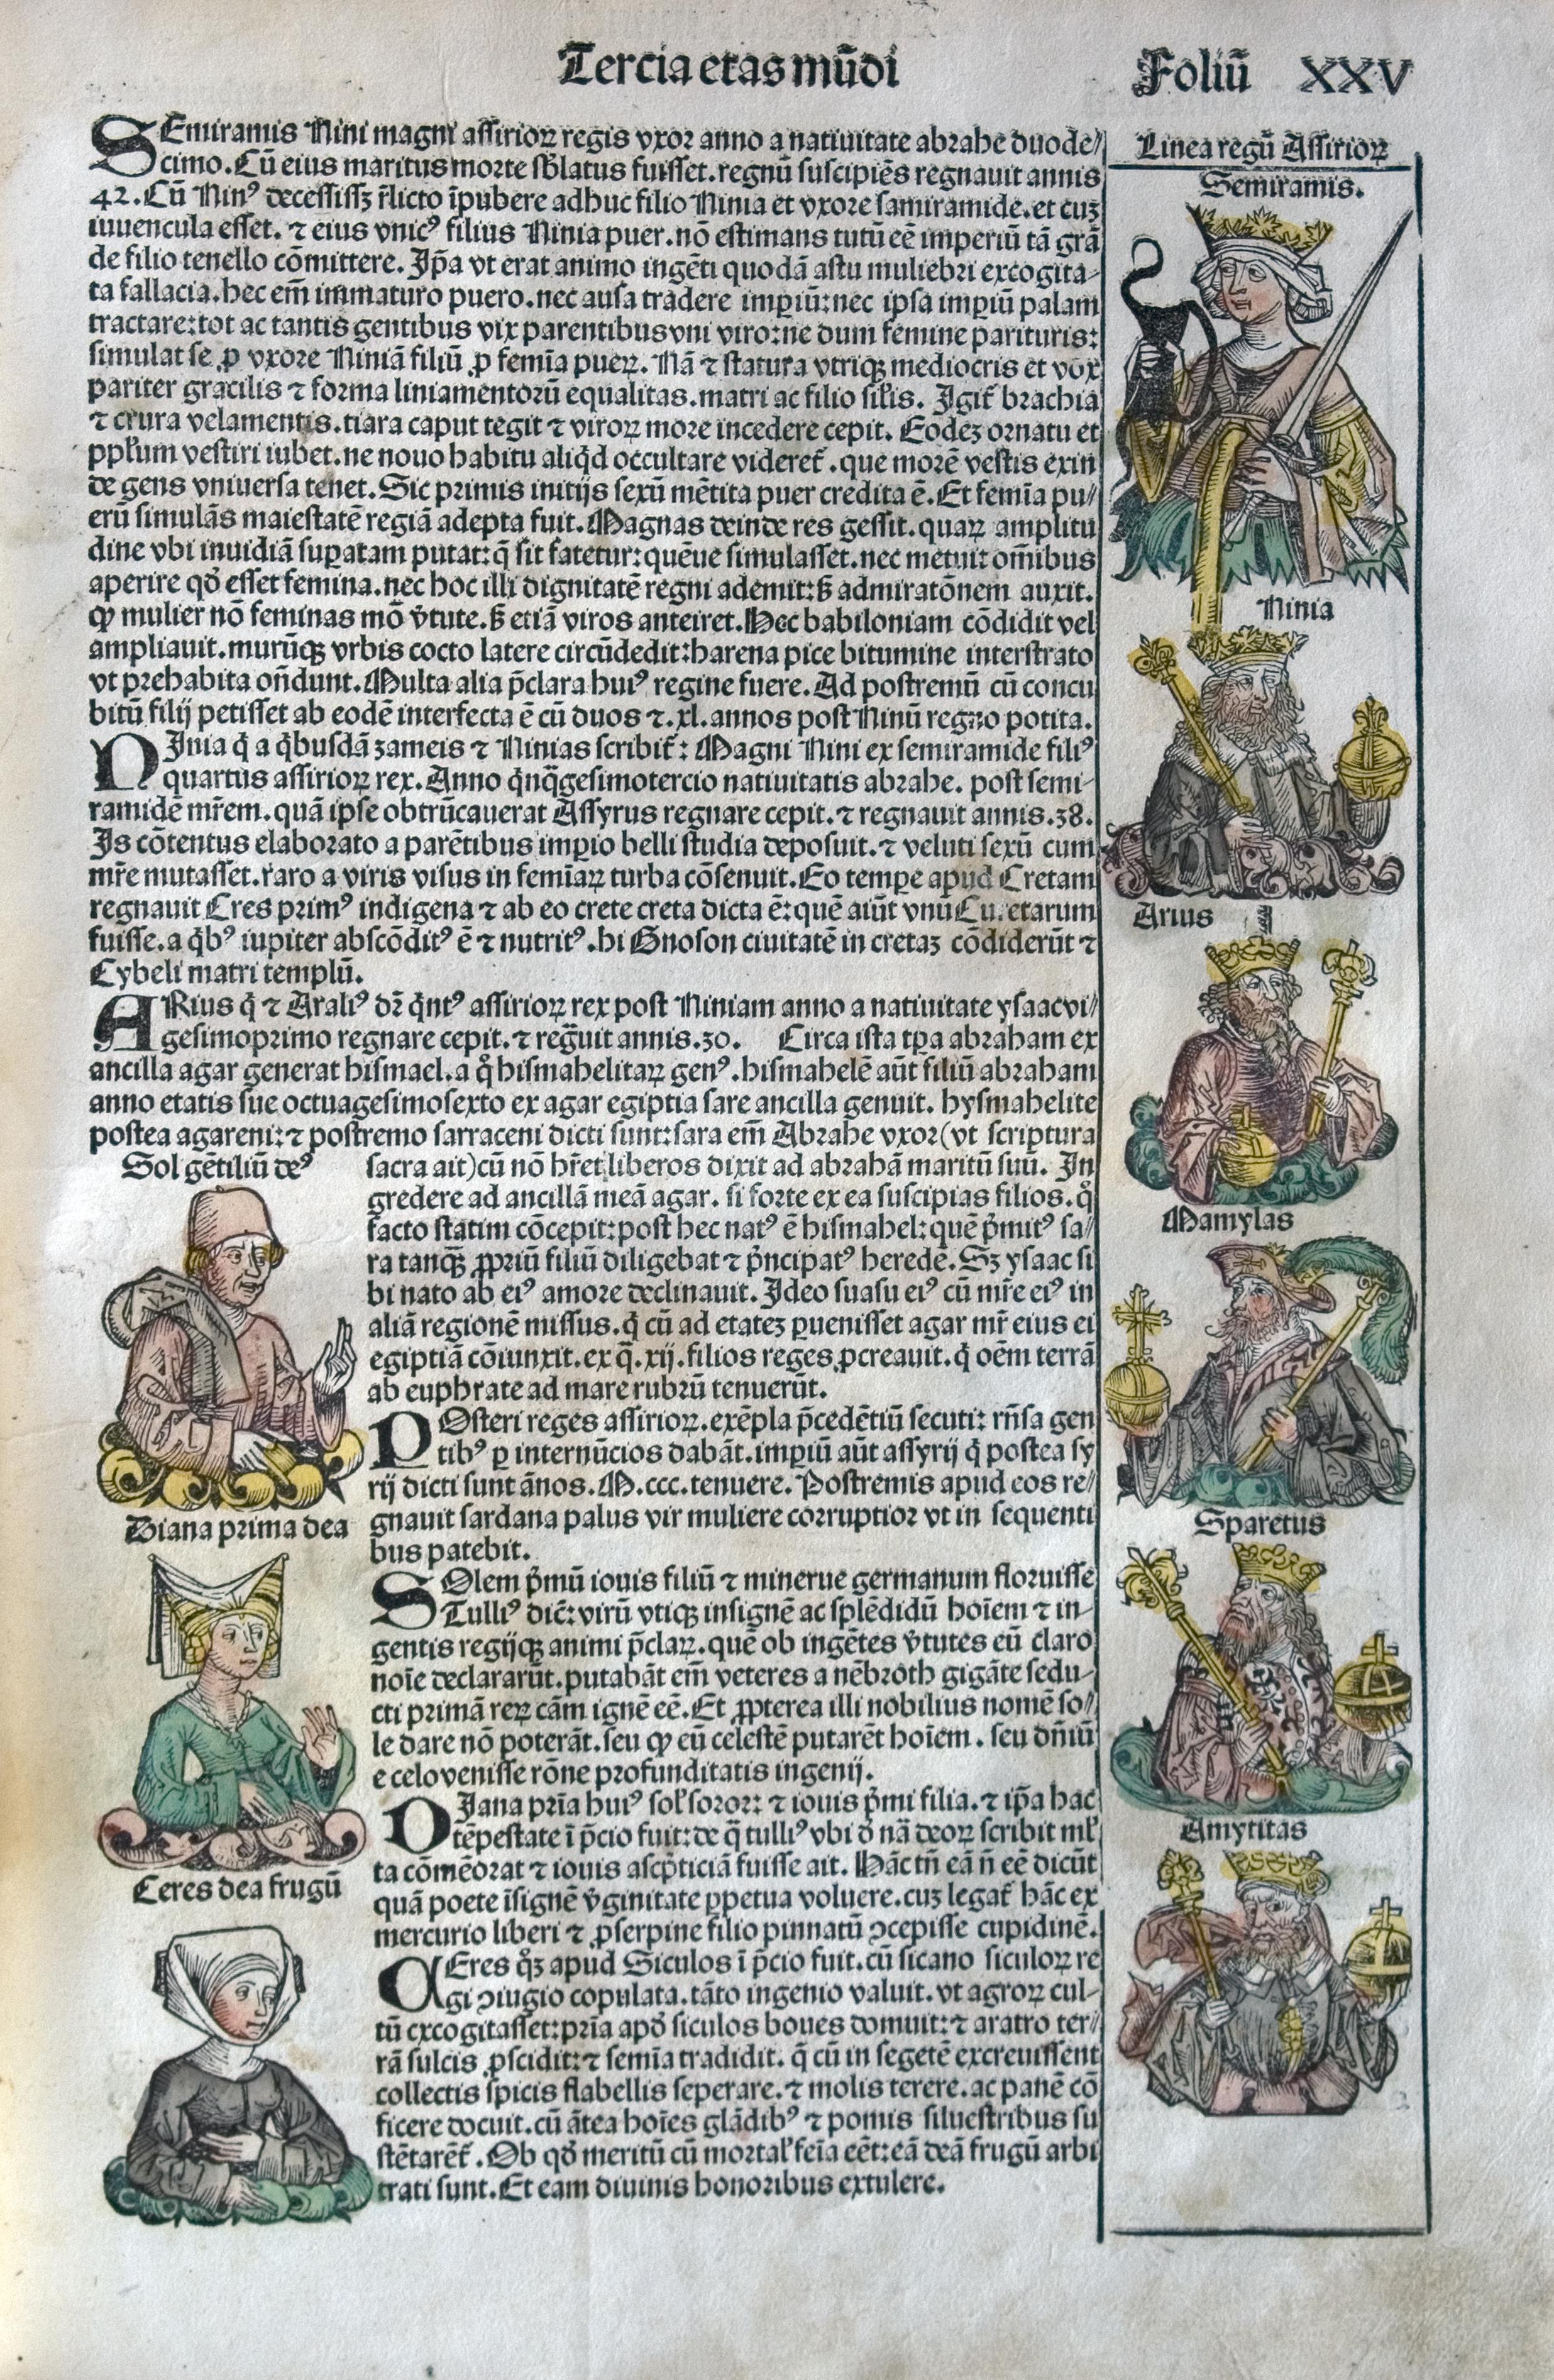 Tercia etas mũdi
Foliũ XXV
SEmiramis Nini magni assirioꝝ regis vxor anno a natiuitate abrahe duode⸗
cimo. Cũ eius maritus morte sblatus fuisset. regnũ suscipiẽs regnauit annis
42. Cũ Ninꝰ decessissꝫ r̃licto ĩpubere adhuc filio Ninia et vxore samiramide. et cuꝫ
iuuencula esset. ⁊ eius vnicꝰ filius Ninia puer. nõ estimans tutũ eẽ imperiũ tã grã
de filio tenello cõmittere. Ip̃a vt erat animo ingẽti quodã astu muliebri excogita⸗
ta fallacia. hec em̃ immaturo puero. nec ausa tradere imꝑiũ: nec ipsa imꝑiũ palam
tractare: tot ac tantis gentibus vix parentibus vni viro: ne dum femine parituris:
simulat se ꝓ vxore Niniã filiũ ꝓ femĩa pueꝝ. Nã ⁊ statura vtriqꝫ mediocris et vox
pariter gracilis ⁊ forma liniamentorũ equalitas. matri ac filio sil̃is. Igit̃ brachia
⁊ crura velamentis. tiara caput tegit ⁊ viroꝝ more incedere cepit. Eodeꝫ ornatu et
ppl̃um vestiri iubet. ne nouo habitu aliq̃d occultare videret̃. que morẽ vestis exin
de gens vniuersa tenet. Sic primis initijs sexũ mẽtita puer credita ẽ. Et femĩa pu⸗
erũ simulãs maiestatẽ regiã adepta fuit. Magnas deinde res gessit. quaꝝ amplitu
dine vbi inuidiã suꝑatam putat: q̃ sit fatetur: quẽue simulasset. nec metuit om̃ibus
aperire qđ esset femina. nec hoc illi dignitatẽ regni ademit: sꝫ admiratõnem auxit.
ꝙ mulier nõ feminas mõ v̾tute. sꝫ etiã viros anteiret. Hec babiloniam cõdidit vel
ampliauit. murũqꝫ vrbis cocto latere circũdedit: harena pice bitumine interstrato
vt prehabita oñdunt. Multa alia p̃clara huiꝰ regine fuere. Ad postremũ cũ concu
bitũ filij petisset ab eodẽ interfecta ẽ cũ duos ⁊. xl. annos post Ninũ regno potita.
NInia q̃ a q̃busdã zameis ⁊ Ninias scribit̃: Magni Nini ex semiramide filiꝰ
quartus assirioꝝ rex. Anno q̃nq̃gesimotercio natiuitatis abrahe. post semi⸗
ramidẽ mr̃em. quã ipse obtrũcauerat Assyrus regnare cepit. ⁊ regnauit annis. 38.
Is cõtentus elaborato a parẽtibus imꝑio belli studia deposuit. ⁊ veluti sexũ cum
mr̃e mutasset. raro a viris visus in femĩaꝝ turba cõsenuit. Eo tempe apud Cretam
regnauit Cres primꝰ indigena ⁊ ab eo crete creta dicta ẽ: quẽ aiũt vnũ Curetarum
fuisse. a q̃bꝰ iupiter abscõditꝰ ẽ ⁊ nutritꝰ. hi Gnoson ciuitatẽ in cretaꝫ cõdiderũt ⁊
Cybeli matri templũ.
ARius q̃ ⁊ Araliꝰ dr̃ q̃ntꝰ assirioꝝ rex post Niniam anno a natiuitate ysaac vi⸗
gesimoprimo regnare cepit. ⁊ regũit annis. 30. Circa ista tꝑa abraham ex
ancilla agar generat hismael. a q̊ hismahelitaꝝ genꝰ. hismahelẽ aũt filiũ abraham
anno etatis sue octuagesimosexto ex agar egiptia sare ancilla genuit. hysmahelite
postea agareni: ⁊ postremo sarraceni dicti sunt: sara em̃ Abrahe vxor (vt scriptura
sacra ait) cũ nõ hr̃et liberos dixit ad abrahã maritũ suũ. In
gredere ad ancillã meã agar. si forte ex ea suscipias filios. q̊
facto statim cõcepit: post hec natꝰ ẽ hismahel: quẽ p̃mitꝰ sa⸗
ra tanq̃ꝫ ꝓpriũ filiũ diligebat ⁊ p̃ncipatꝰ heredẽ. Sꝫ ysaac si
bi nato ab eiꝰ amore declinauit. Ideo suasu eiꝰ cũ mr̃e eiꝰ in
aliã regionẽ missus. q̃ cũ ad etateꝫ ꝑuenisset agar mr̃ eius ei
egiptiã cõiunxit. ex q̃. xij. filios reges ꝓcreauit. q̃ oẽm terrã
ab euphrate ad mare rubrũ tenuerũt.
POsteri reges assirioꝝ. exẽpla p̃cedẽtiũ secuti: rñsa gen
tibꝰ ꝑ internũcios dabãt. imꝑiũ aũt assyrij q̃ postea sy
rij dicti sunt ãnos. M. ccc. tenuere. Postremis apud eos re⸗
gnauit sardana palus vir muliere corruptior vt in sequenti
bus patebit.
SOlem p̃mũ iouis filiũ ⁊ minerue germanum floruisse
Tulliꝰ dic̃: virũ vtiqꝫ insignẽ ac splẽdidũ hoĩem ⁊ in⸗
gentis regijqꝫ animi p̃claꝝ. quẽ ob ingẽtes v̾tutes eũ claro
noĩe declararũt. putabãt em̃ veteres a nẽbroth gigãte sedu⸗
cti primã reꝝ cãm ignẽ eẽ. Et ꝓpterea illi nobilius nomẽ so⸗
le dare nõ poterãt. seu ꝙ eũ celestẽ putarẽt hoĩem. seu dñiũ
e celo venisse rõne profunditatis ingenij.
DIana pria huiꝰ sol̃ soror: ⁊ iouis p̃mi filia. ⁊ ip̃a hac
tẽpestate ĩ p̃cio fuit: de q̃ tulliꝰ vbi đ nã deoꝝ scribit ml̃
ta cõmẽorat ⁊ iouis ascp̃ticiã fuisse ait. Hãc tñ eã ñ eẽ dicũt
quã poete ĩsignẽ v̾ginitate ꝑpetua voluere. cuꝫ legat̃ hãc ex
mercurio liberi ⁊ ꝓserpine filio pinnatũ ↄcepisse cupidinẽ.
CEres q̊ꝫ apud Siculos ĩ p̃cio fuit. cũ sicano siculoꝝ re
gi ↄiugio copulata. tãto ingenio valuit. vt agroꝝ cul⸗
tũ excogitasset: pria apđ siculos boues domuit: ⁊ aratro ter⸗
rã sulcis ꝓscidit: ⁊ semĩa tradidit. q̃ cũ in segetẽ excreuissent
collectis spicis flabellis seperare. ⁊ molis terere. ac panẽ cõ
ficere docuit. cũ ãtea hoĩes glãdibꝰ ⁊ pomis siluestribus su
stẽtarẽt̃. Ob qđ meritũ cũ mortal̃ feĩa eẽt: eã deã frugũ arbi
trati sunt. Et eam diuinis honoribus extulere.
Sol gẽtiliũ deꝰ
Diana prima dea
Ceres dea frugũ
Linea regũ Assirioꝝ
Semiramis.
Ninia
Arius
Mamylas
Sparetus
Amytitas